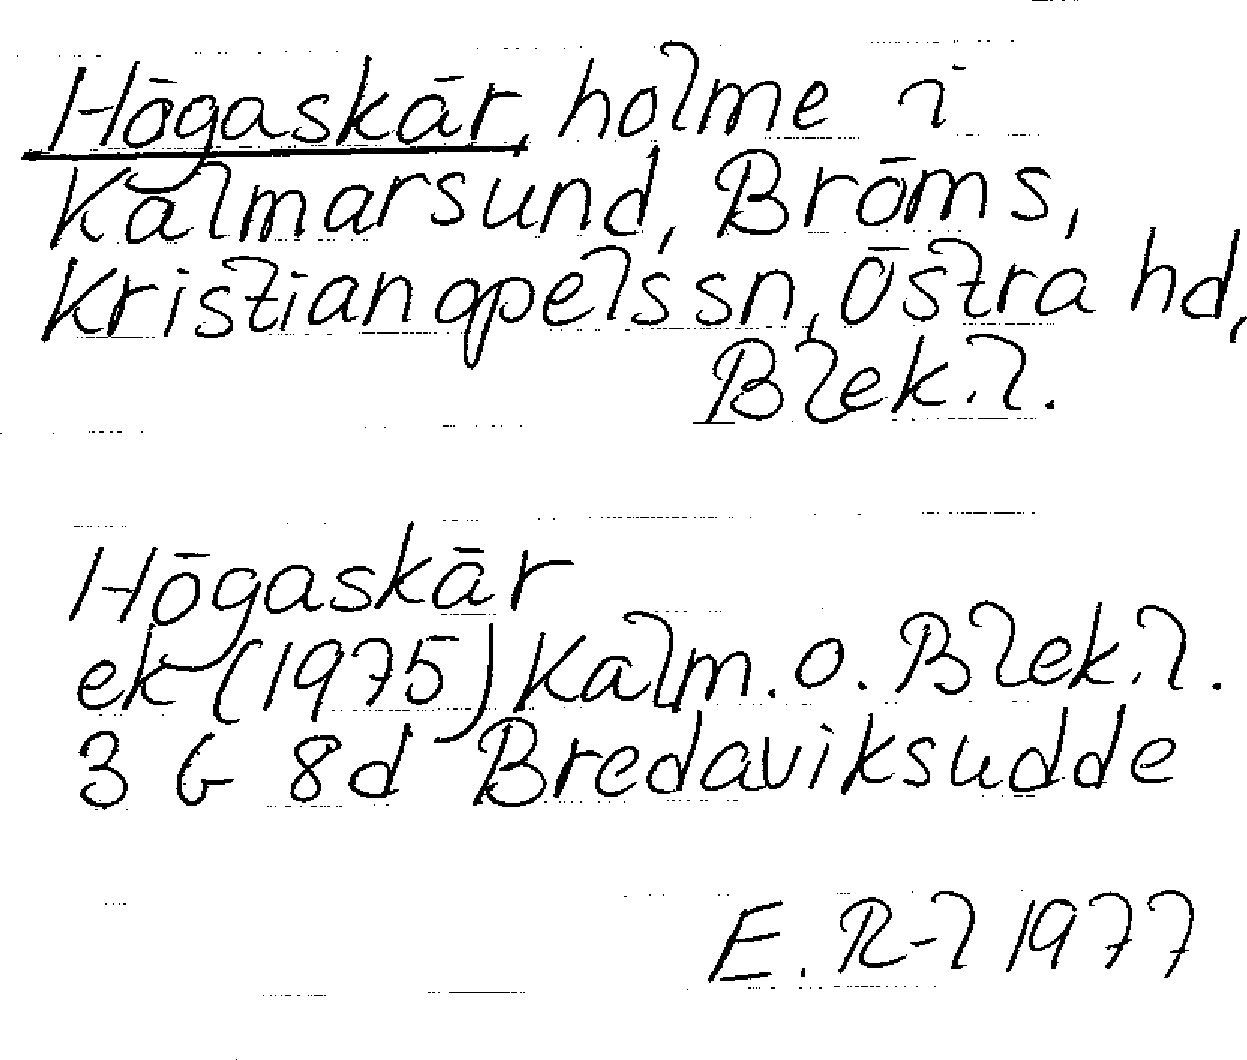 Högaskär, holme i
Kalmarsund, Bröms,
Kristianopelssn, Östra hd,
Blek.l.
Högaskär
ek (1975) Kalm. o. Blek.l.
3 G 8d Bredaviksudde
E. R-l 1977